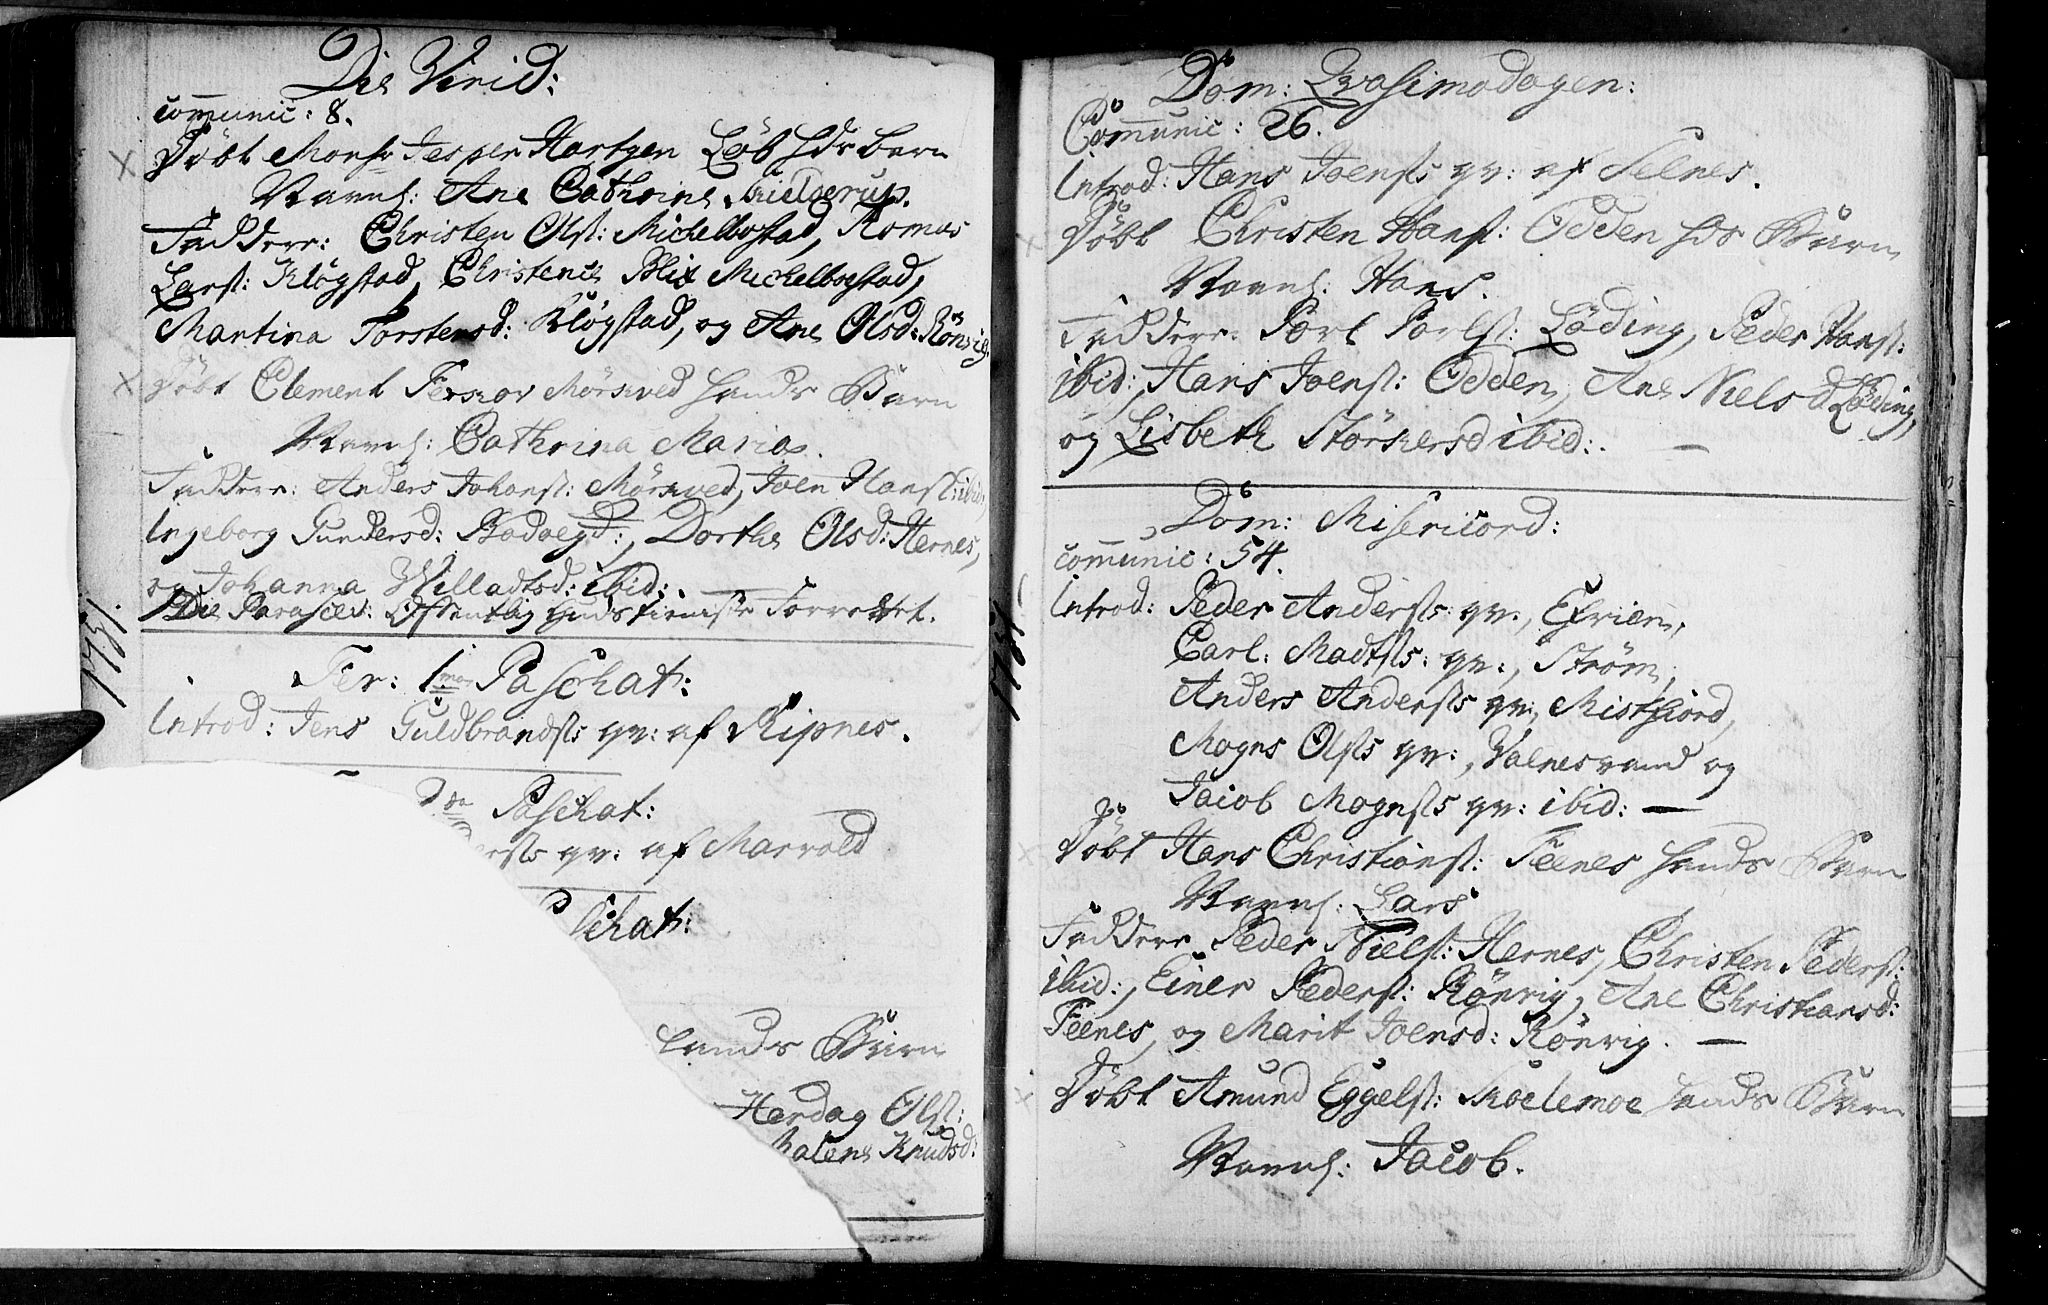 Die Virid:
communic: 8.
Døbt Monsr Jesper Hartgen Løb hds barn
Navnl: Ane Cathrine Kielderup.
Faddere: Christen Olss: Michelbostad, Romas
Larss: Kløgstad, Christence Blix Michelbostad,
Martina Torstensd: Kløgstad, og Ane Olsd: Rönvig.
Døbt Clement Mörkved hands Barn
Navnl: Cathrina Maria.
Faddere: Anders Johanss: Mörkved, Joen Hanss: ibid,
Ingeborg Gundersd: Bodøegd:, Dorthe Olsd: Hernes,
og Johanna Willadtsd: ibid:
Die Parascev: Offentlig Gudstieniste Forrettet.
1751.
Fer: 1ma Paschat:
Introd: Jens Guldbrandss qv: af Ripnes.
2da Paschat:
qv: af Marvold
Paschat:
hands Barn
Herdag Olss:
Malene Knudsd:
Dom: Qvasimodogen:
Comunic: 26.
Introd: Hans Joenss qv: af Seenes.
Døbt Christen Hanss: Odden hds Barn
Navnl: Hans.
Faddere: Poel Poelss: Løding, Peder Hanss:
ibid:, Hans Joenss: Odden, Ane Nielsd Løding,
og Lisbeth Störkersd ibid:.
Dom: Misericord:
comunic: 54.
1751
Introd: Peder Anderss: qv:,
Carl: Madtss: qv:, Ström,
Anders Anderss qv:, Mistfiord,
Mogns Olss qv:, Valnesvand og
Jacob Mognss qv: ibid:
Døbt Hans Christianss: Feenes hands Barn
Navnl: Lars
Faddere Peder Nielss: Hernes, Christen Pederss:
ibid:, Einer Pederss: Rönvig, Ane Christiansd:
Feenes, og Marit Joensd: Rönvig.
Døbt Amund Eggelss: Skoelemoe hands Barn
Navnl: Jacob.